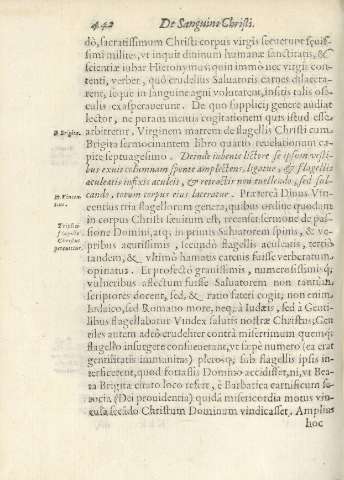 442 De Sanguine Christi.
dò, sacratissimum Christi corpus virgis secuerunt sęuis-
simi milites, vt inquit diuinum humanæ sanctitatis, &
scientiæ iubar Hieronymus; quinimmò nec virgis con-
tenti, verber, quò crudeliùs Saluatoris carnes dilacera-
rent, seque in sanguine agni volutarent, insitis talis os-
culis exasperauerunt. De quo supplicij genere audiat
lector, ne parum mentis cogitationem quis istud esse
B. Brigita. arbitretur, Virginem matrem de flagellis Christi cum
Brigita sermocinantem libro quarto reuelationum ca-
pite septuagesimo. Deinde iubente lictore se ipsum vesti-
bus exuit columnam sponte amplectens, ligatur, & flagellis
aculeatis infixis aculeis, & retractis non euellendo, sed sul-
B. Vincen-
tius. cando, totum corpus eius laceratur. Prætereà Diuus Vin-
centius tria flagellorum genera, quibus ordine quodam
in corpus Christi sæuitum est, recenset sermone de pas-
Triplici
flagello
Christus
percutitur. sione Domini, atq; in primis Saluatorem spinis, & ve-
pribus acutissimis, secundò flagellis aculeatis, tertiò
tandem, & vltimò hamatis catenis fuisse verberatum
opinatus. Et profectò grauissimis, numerosissimisq;
vulneribus affectum fuisse Saluatorem non tantùm
scriptores docent, sed, & ratio fateri cogit; non enim
Iudaico, sed Romano more, neq; à Iudæis, sed à Genti-
libus flagellabatur Vindex salutis nostræ Christus; Gen-
tiles autem adeò crudeliter contrà miserrimum quemq;
flagello insurgere consueuerant, vt sæpè numero (ea erat
gentilitatis immanitas) plerosq; sub flagellis ipsis in-
terficerent, quod fortassis Domino accidisset, ni, vt Bea-
ta Brigita citato loco refert, è Barbarica carnificum so-
cietate (Dei prouidentia) quidã misericordia motus vin-
cula secãdo Christum Dominum vindicasset. Ampliùs
hoc